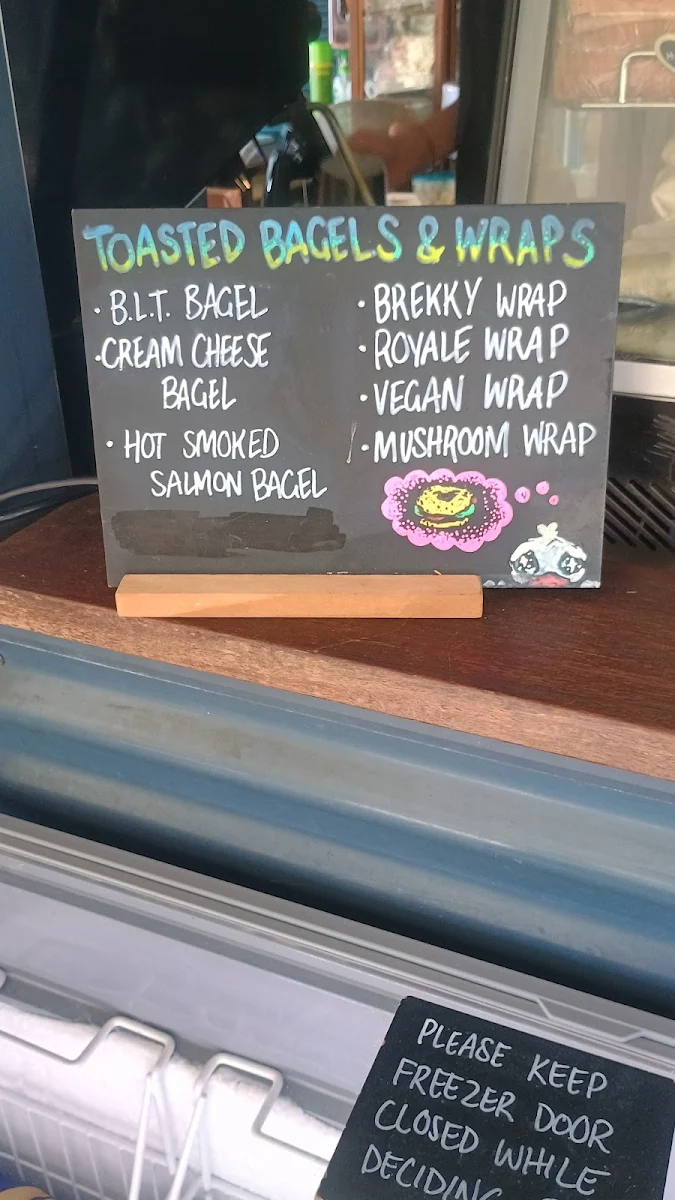 TOASTED BAGELS & WRAPS
· B.L.T. BAGEL
· CREAM CHEESE
BAGEL
· HOT SMOKED
SALMON BAGEL
· BREKKY WRAP
· ROYALE WRAP
· VEGAN WRAP
· MUSHROOM WRAP
PLEASE KEEP
FREEZER DOOR
CLOSED WHILE
DECIDING